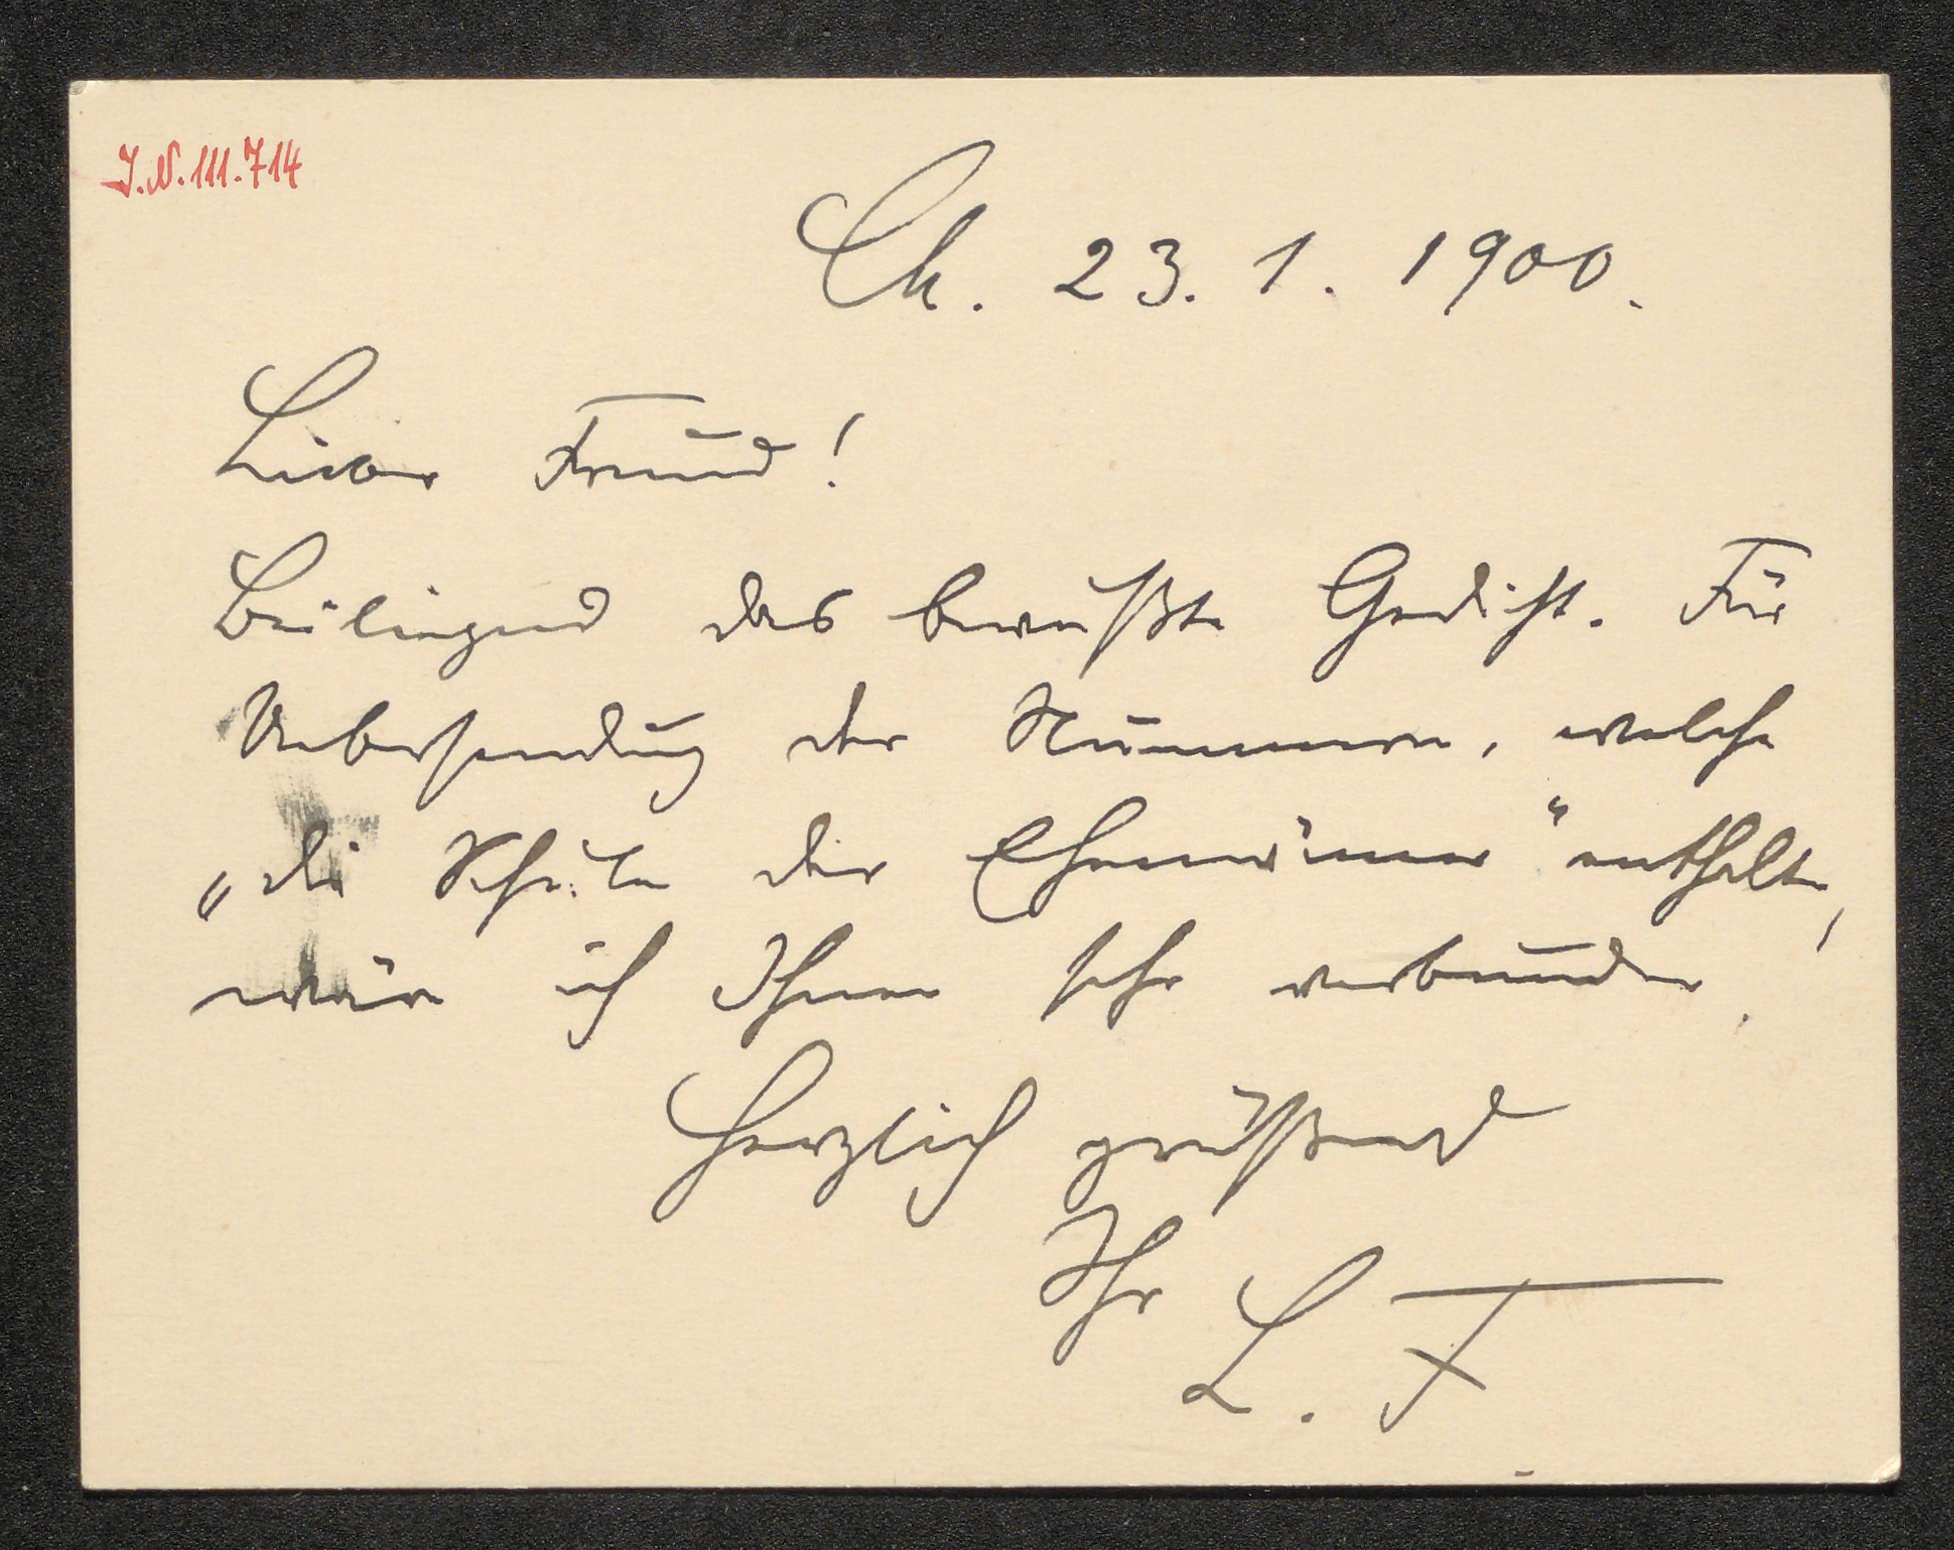 J.N. 111.714
Ch. 23. 1. 1900.
Lieber Freund!
Beiliegend das bewußte Gedicht. Für
Uebersendung der Nummern, welche
„die Schule der Ehemänner“ enthalten,
wäre ich Ihnen sehr verbunden.
Herzlich grüßend
Ihr
L. F